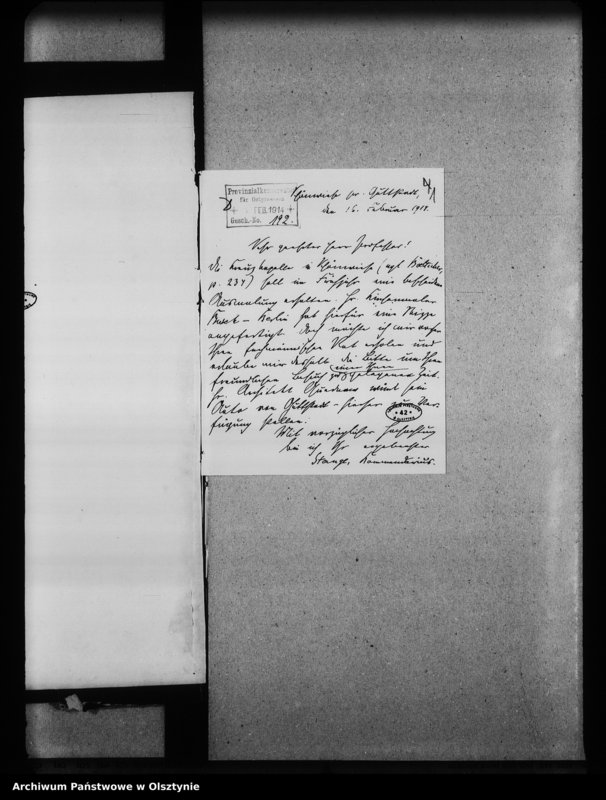 Provinzialkonservator
für Ostpreussen
FEB. 1914
Gesch.-No. 192.
41
Schönwiese pr. Guttstadt,
den 16. Februar 1914.
Sehr geehrter Herr Professor!
Die Kreuzkapelle in Schönwiese (vgl. Bötticher,
p. 234) soll im Frühjahr eine bescheidene
Ausmalung erhalten. Hr. Kirchenmaler
Berlin hat hierfür eine Skizze
angefertigt. Doch möchte ich mir erst
Ihren fachmännischen Rat erholen und
erlaube mir deshalb die Bitte um Ihren
freundlichen Besuch zu einer Ihnen gelegenen Zeit.
Hr. Architekt wird sein
Auto von Guttstadt - hierher zur Ver-
fügung stellen.
Mit vorzüglicher Hochachtung
bin ich Ihr ergebenster
Kommendarius.
* 42 *
Archiwum Państwowe w Olsztynie